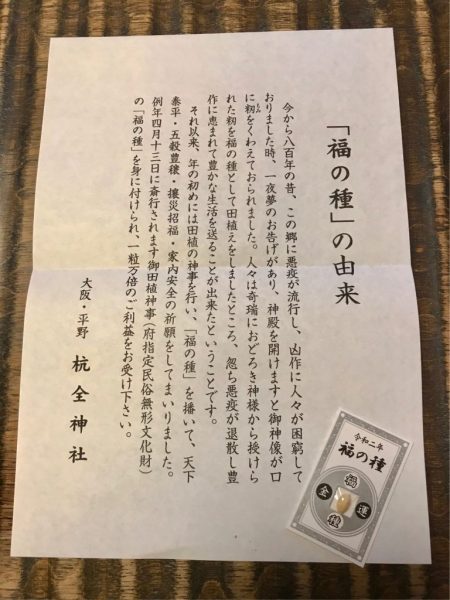 「福の種」の由来
今から八百年の昔、この郷に悪疫が流行し、凶作に人々が困窮して
おりました時、一夜夢のお告げがあり、神殿を開けますと御神像が口
に籾をくわえておられました。人々は奇瑞におどろき神様から授けら
れた籾を福の種として田植えをしましたところ、忽ち悪疫が退散し豊
作に恵まれて豊かな生活を送ることが出来たということです。
それ以来、年の初めには田植の神事を行い、「福の種」を播いて、天下
泰平・五穀豊穣・攘災招福・家内安全の祈願をしてまいりました。
例年四月十三日に斎行されます御田植神事(府指定民俗無形文化財)
の「福の種」を身に付けられ、一粒万倍のご利益をお受け下さい。
大阪・平野 杭全神社
令和二年
福の種
福
金 運
種